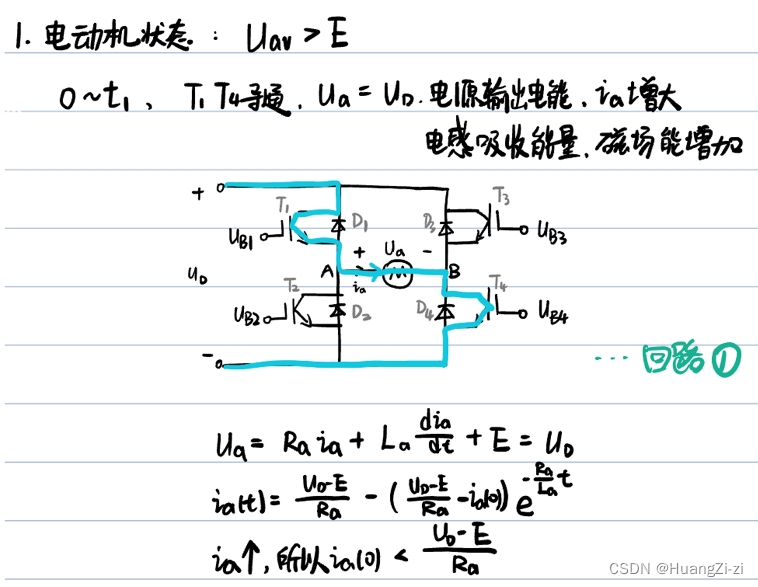 1. 电动机状态: Uav > E
0~t₁、T₁ T₄导通, Ua = UD. 电源输出电能, ia增大
电感吸收能量, 磁场能增加
+ T₁ D₁ D₃ T₃
UB1 + Ua - UB3
UD A ia M B
T₂ T₄
UB2 D₂ D₄ UB4
-
... 回路①
Ua = Ra ia + La dia/dt + E = UD
ia(t) = (UD-E)/Ra - ((UD-E)/Ra - ia(0)) e^(-(Ra/La)t)
ia↑, 所以 ia(0) < (UD-E)/Ra
CSDN @HuangZi-zi